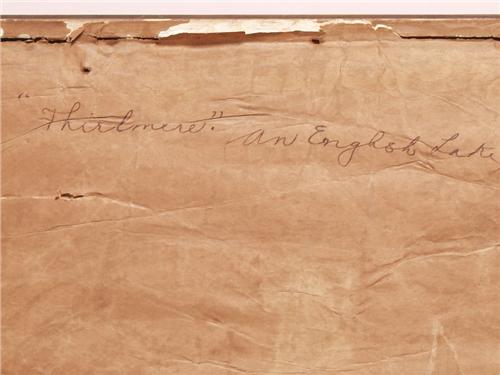 "Thirlmere". An English Lake